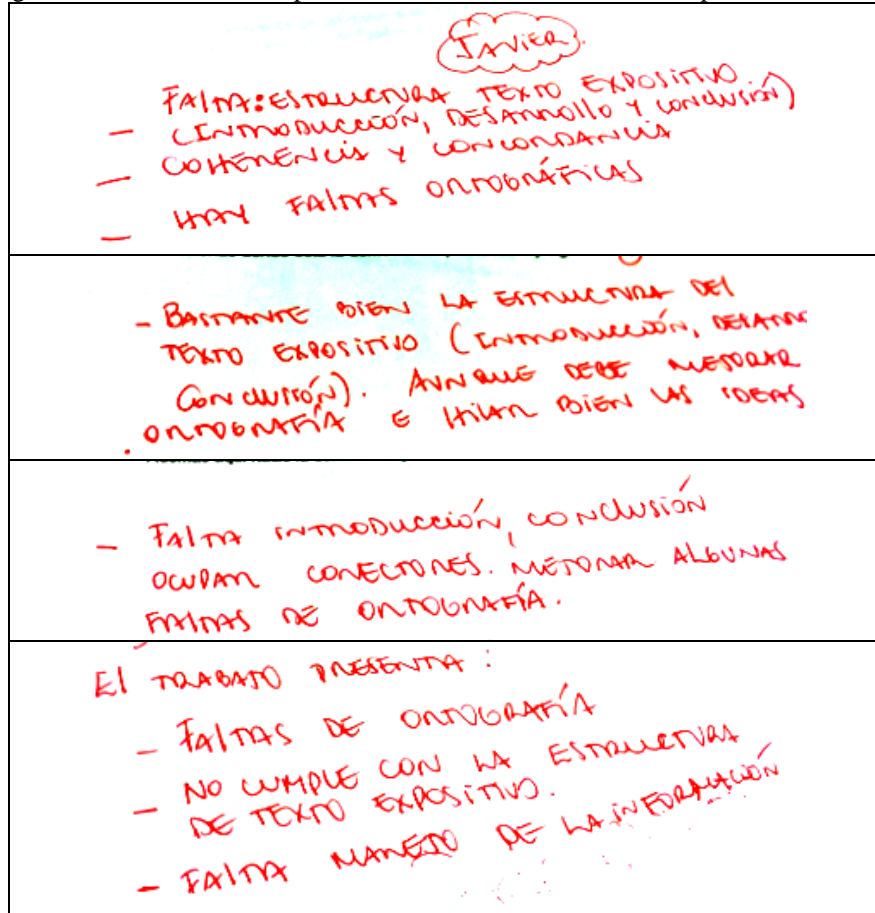 JAVIER
FALTA: ESTRUCTURA TEXTO EXPOSITIVO.
– (INTRODUCCIÓN, DESARROLLO Y CONCLUSIÓN)
– COHERENCIA Y CONCORDANCIA
– HAY FALTAS ORTOGRÁFICAS
- BASTANTE BIEN LA ESTRUCTURA DEL
TEXTO EXPOSITIVO (INTRODUCCIÓN, DESARRO
CONCLUSIÓN). AUNQUE DEBE MEJORAR
ORTOGRAFÍA E HILAR BIEN LAS IDEAS
- FALTA INTRODUCCIÓN, CONCLUSIÓN
OCUPAR CONECTORES. MEJORAR ALGUNAS
FALTAS DE ORTOGRAFÍA.
El TRABAJO PRESENTA:
- FALTAS DE ORTOGRAFÍA
- NO CUMPLE CON LA ESTRUCTURA
DE TEXTO EXPOSITIVO.
- FALTA MANEJO DE LA INFORMACIÓN